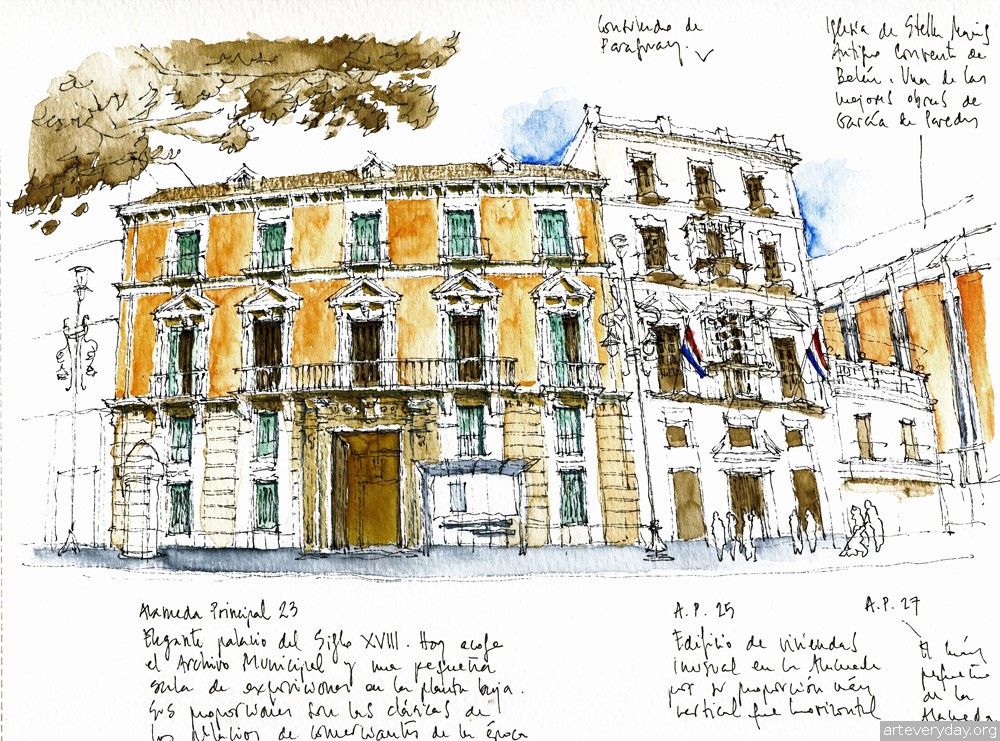 Consulado de
Paraguay.
Iglesia de Stella Maris
Antiguo Convento de
Belén. Una de las
mejores obras de
García de Paredes
Alameda Principal 23
Elegante palacio del Siglo XVIII. Hoy acoge
el Archivo Municipal y una pequeña
sala de exposiciones en la planta baja.
Sus proporciones son las clásicas de
los palacios de comerciantes de la época
A.P. 25
Edificio de viviendas
inusual en la Alameda
por su proporción más
vertical que horizontal
A.P. 27
El más
pequeño
de la
Alameda
arteveryday.org